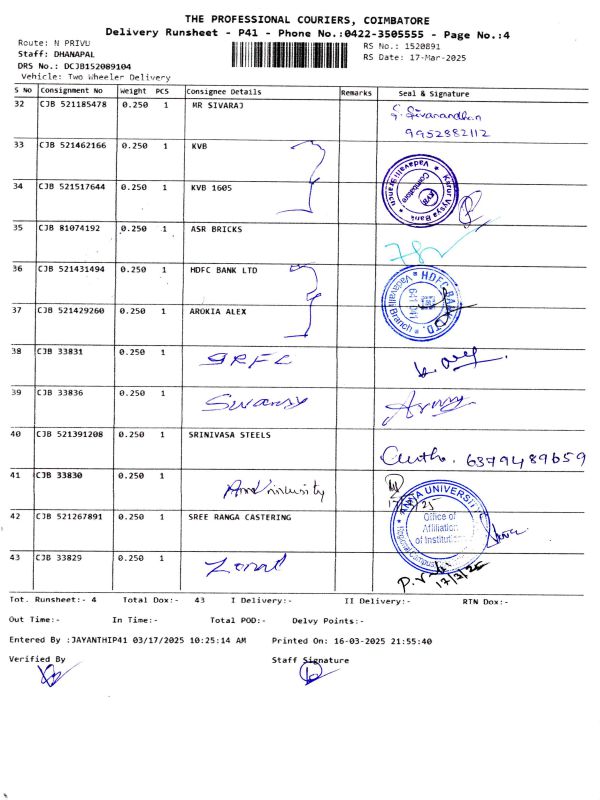 THE PROFESSIONAL COURIERS, COIMBATORE
Delivery Runsheet - P41 - Phone No.:0422-3505555 - Page No.:4
Route: N PRIVU
RS No.: 1520891
Staff: DHANAPAL
RS Date: 17-Mar-2025
DRS No.: DCJB152089104
Vehicle: Two Wheeler Delivery
S No Consignment No Weight PCS Consignee Details Remarks Seal & Signature
32 CJB 521185478 0.250 1 MR SIVARAJ G. Sivanandhan
9952882112
33 CJB 521462166 0.250 1 KVB
Karur Vysya Bank Vadavalli Branch KVB Coimbatore
34 CJB 521517644 0.250 1 KVB 1605
35 CJB 81074192 0.250 1 ASR BRICKS
36 CJB 521431494 0.250 1 HDFC BANK LTD
HDFC BANK LTD. Vadavalli Branch 641 041
37 CJB 521429260 0.250 1 AROKIA ALEX
38 CJB 33831 0.250 1
39 CJB 33836 0.250 1 Swamy
40 CJB 521391208 0.250 1 SRINIVASA STEELS
6379489659
41 CJB 33830 0.250 1
ANNA UNIVERSITY
Office of
Affiliation
of Institutions
Regional Campus
42 CJB 521267891 0.250 1 SREE RANGA CASTERING
43 CJB 33829 0.250 1 Zonal
17/3/25
Tot. Runsheet:- 4 Total Dox:- 43 I Delivery:- II Delivery:- RTN Dox:-
Out Time:- In Time:- Total POD:- Delvy Points:-
Entered By :JAYANTHIP41 03/17/2025 10:25:14 AM Printed On: 16-03-2025 21:55:40
Verified By Staff Signature